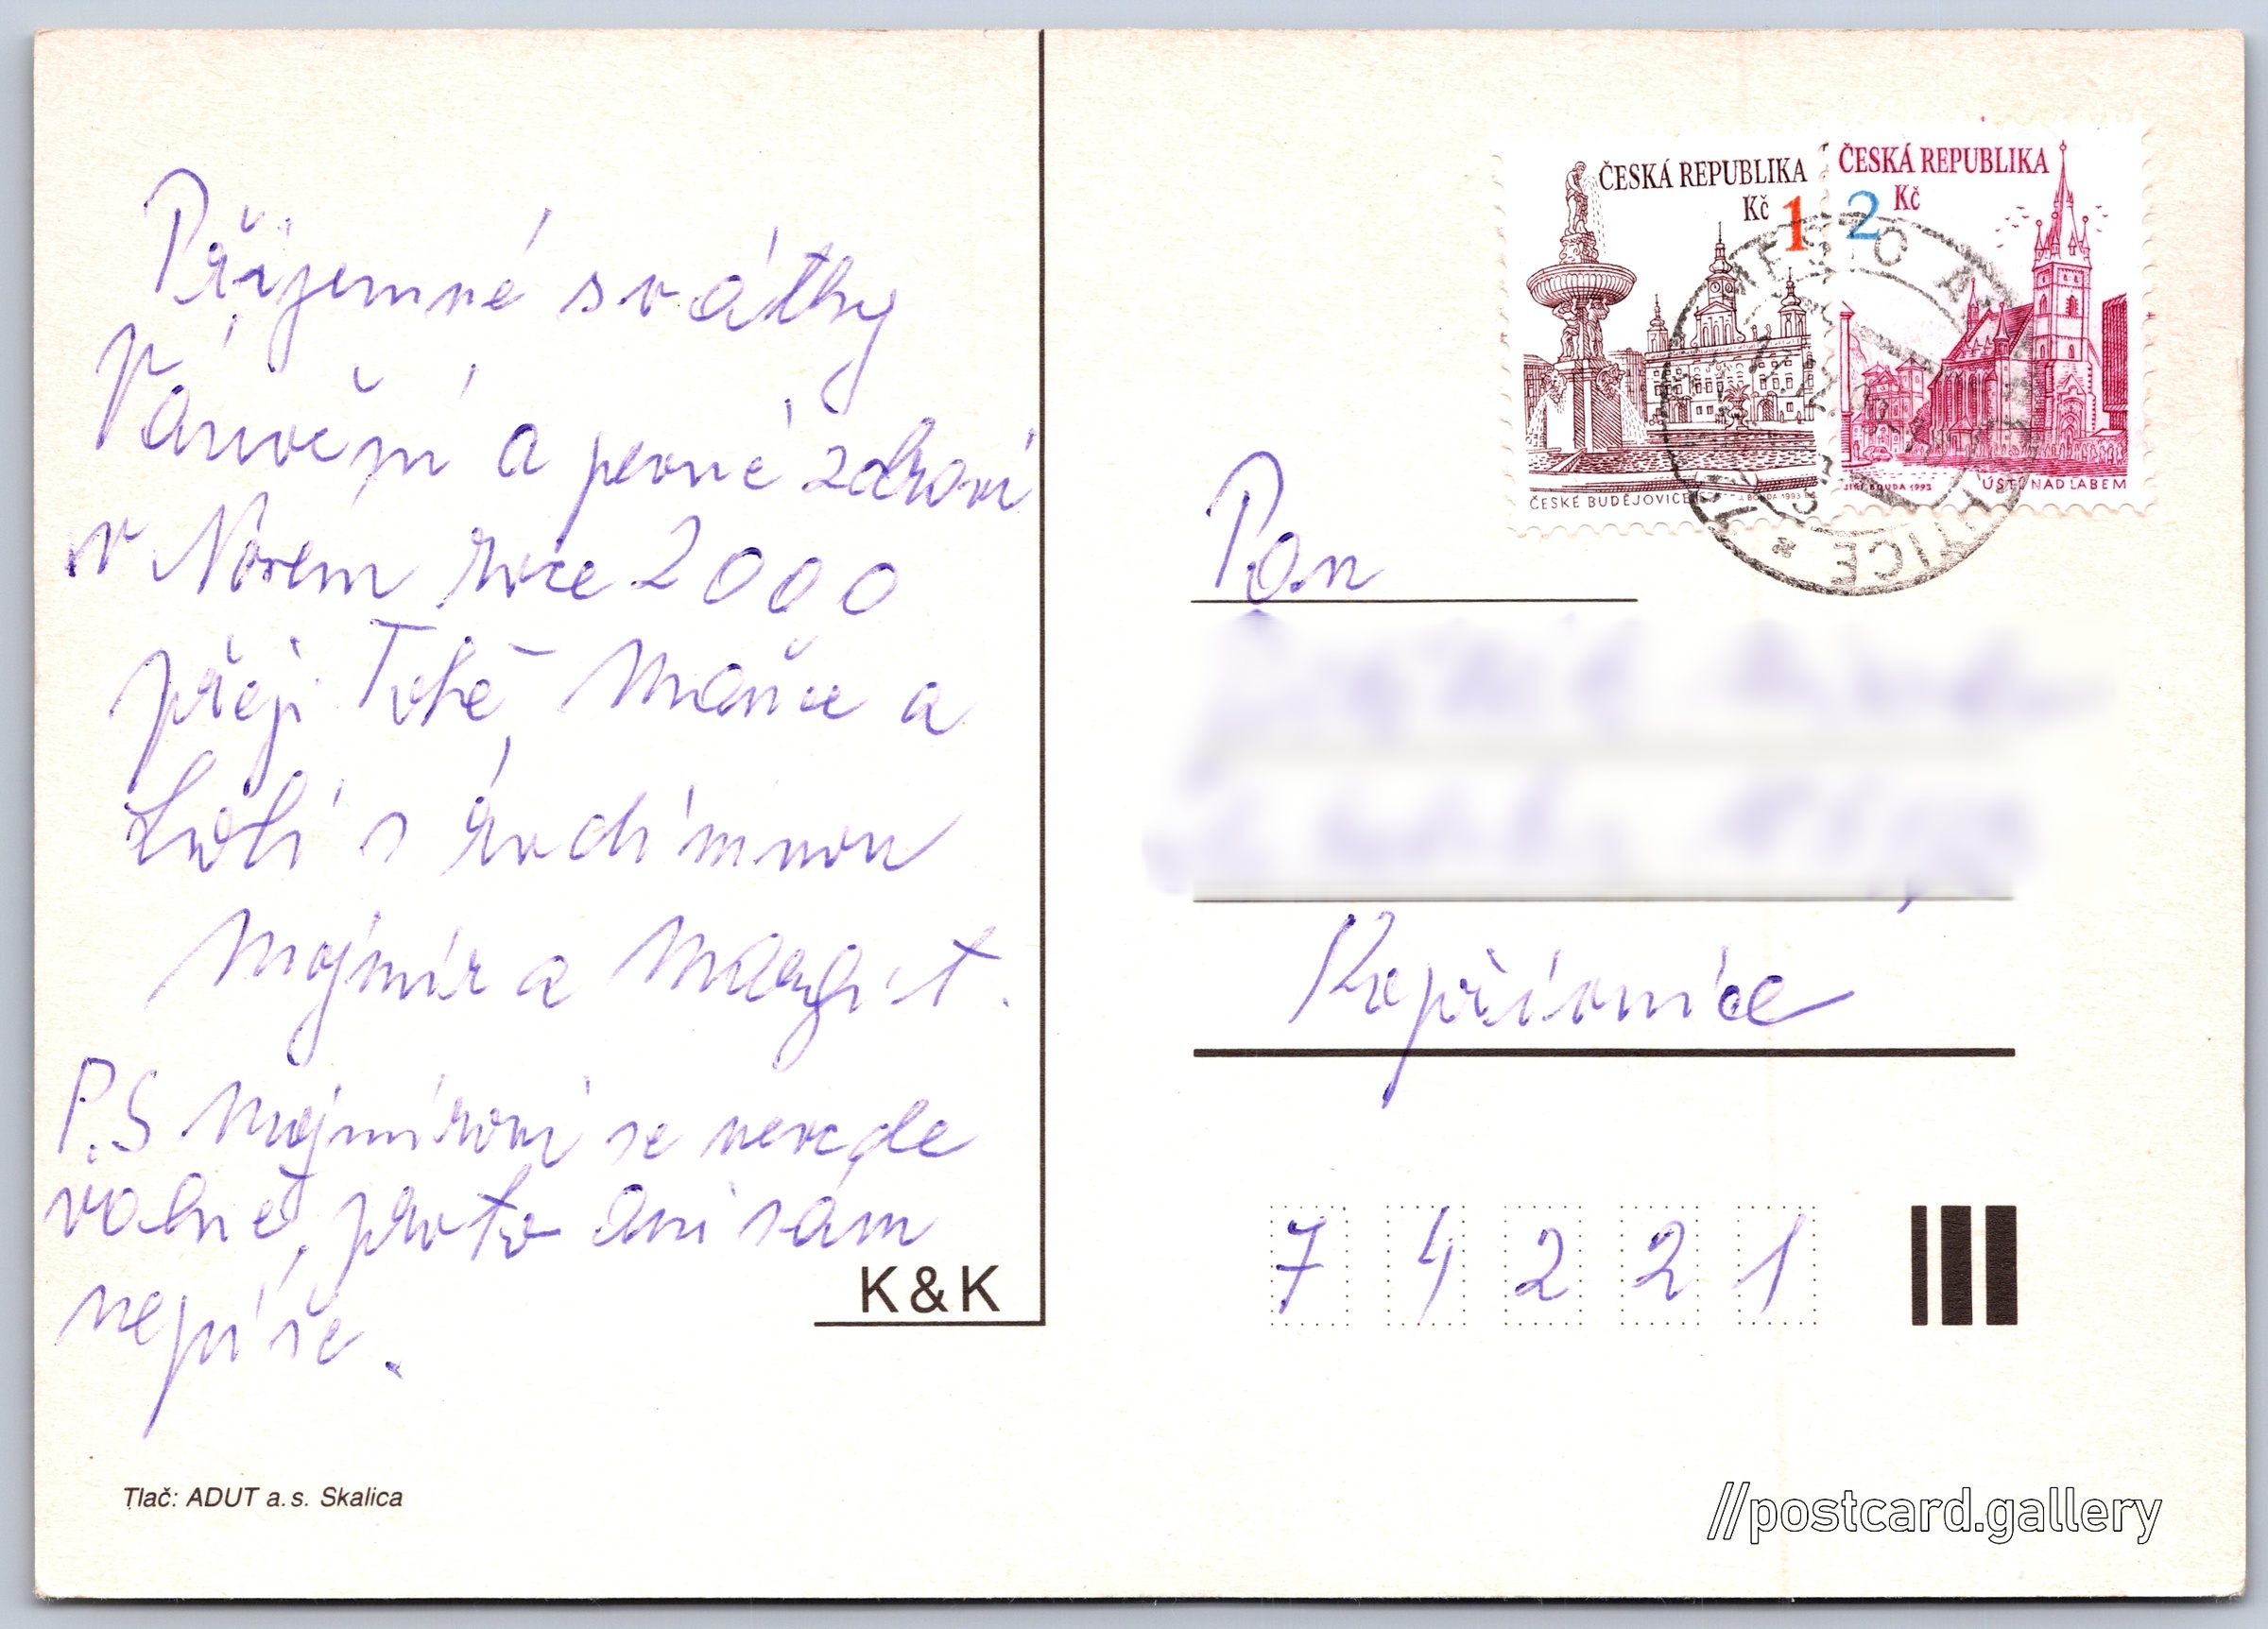 Příjemné svátky
Vánoční a pevné zdraví
v Novém roce 2000
přeji Tobě, Mařce a
s rodinnou
Mojmír a Margit.
P.S Mojmírovi se nevede
valně, proto ani sám
nepíše.
K&K
Tlač: ADUT a.s. Skalica
ČESKÁ REPUBLIKA
Kč 1
ČESKÉ BUDĚJOVICE
J. BOUDA 1993
ČESKÁ REPUBLIKA
2 Kč
JIŘÍ BOUDA 1993
ÚSTÍ NAD LABEM
Pan
Kopřivnice
7 4 2 2 1
//postcard.gallery